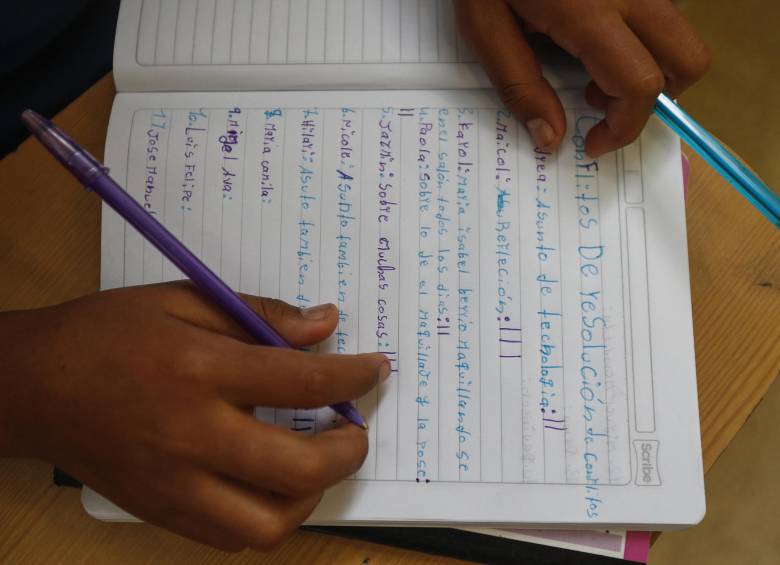 Scribe
Conflitos De resolución de Conflitos
drea: Asunto de tecnologia: ll
2. Maicol: Reflección: lll
3. Karol: Maria isabel berrio Maquillandose
en el salón todos los dias: ll
4. Paola: sobre lo de el Maquillare y la pose:
ll
5. Jazmin: Sobre muchas cosas: lll
6. Nicole: Asunto tambien de tec
7. Hilari: Asuto tambien de
8. Maria camila:
9. Migel Ava:
10. Luis Felipe:
11 Jose Manuel